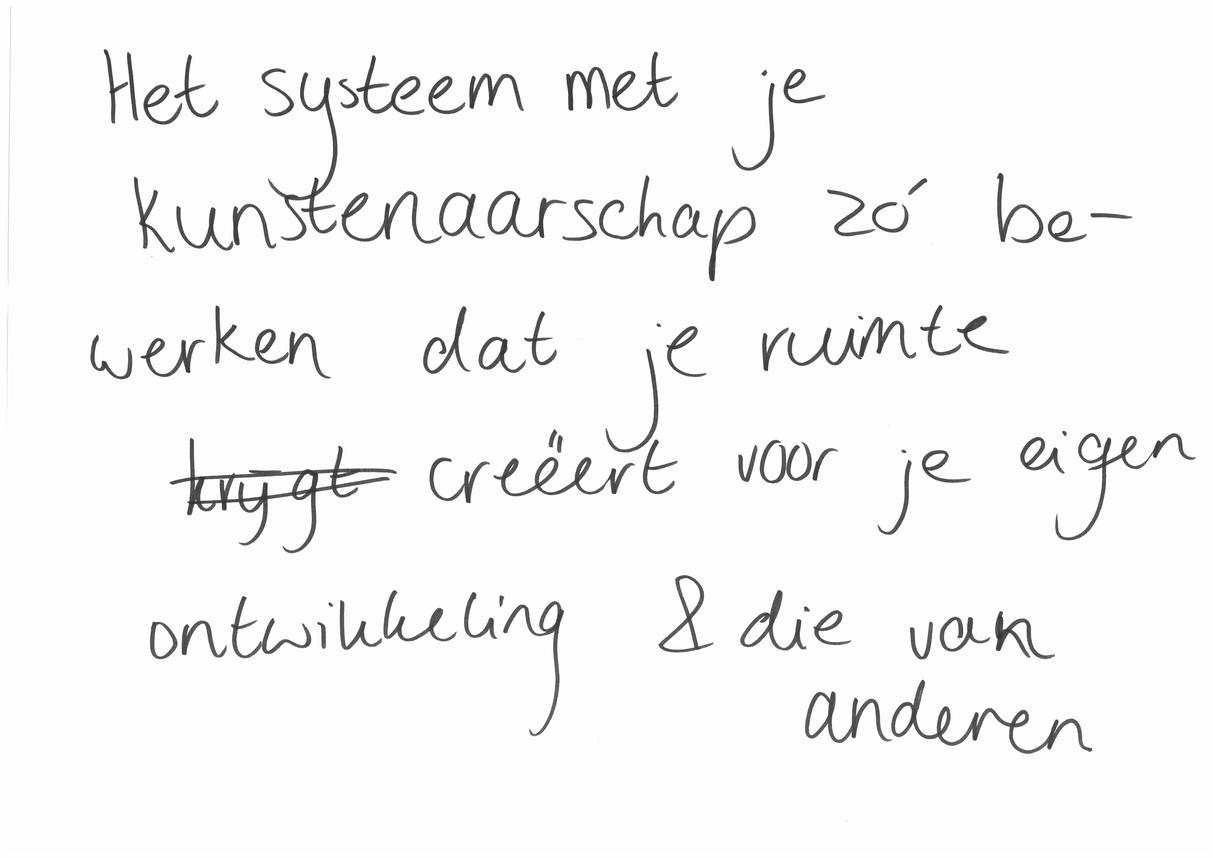 Het systeem met je
kunstenaarschap zó be-
werken dat je ruimte
krijgt creëert voor je eigen
ontwikkeling & die van
anderen